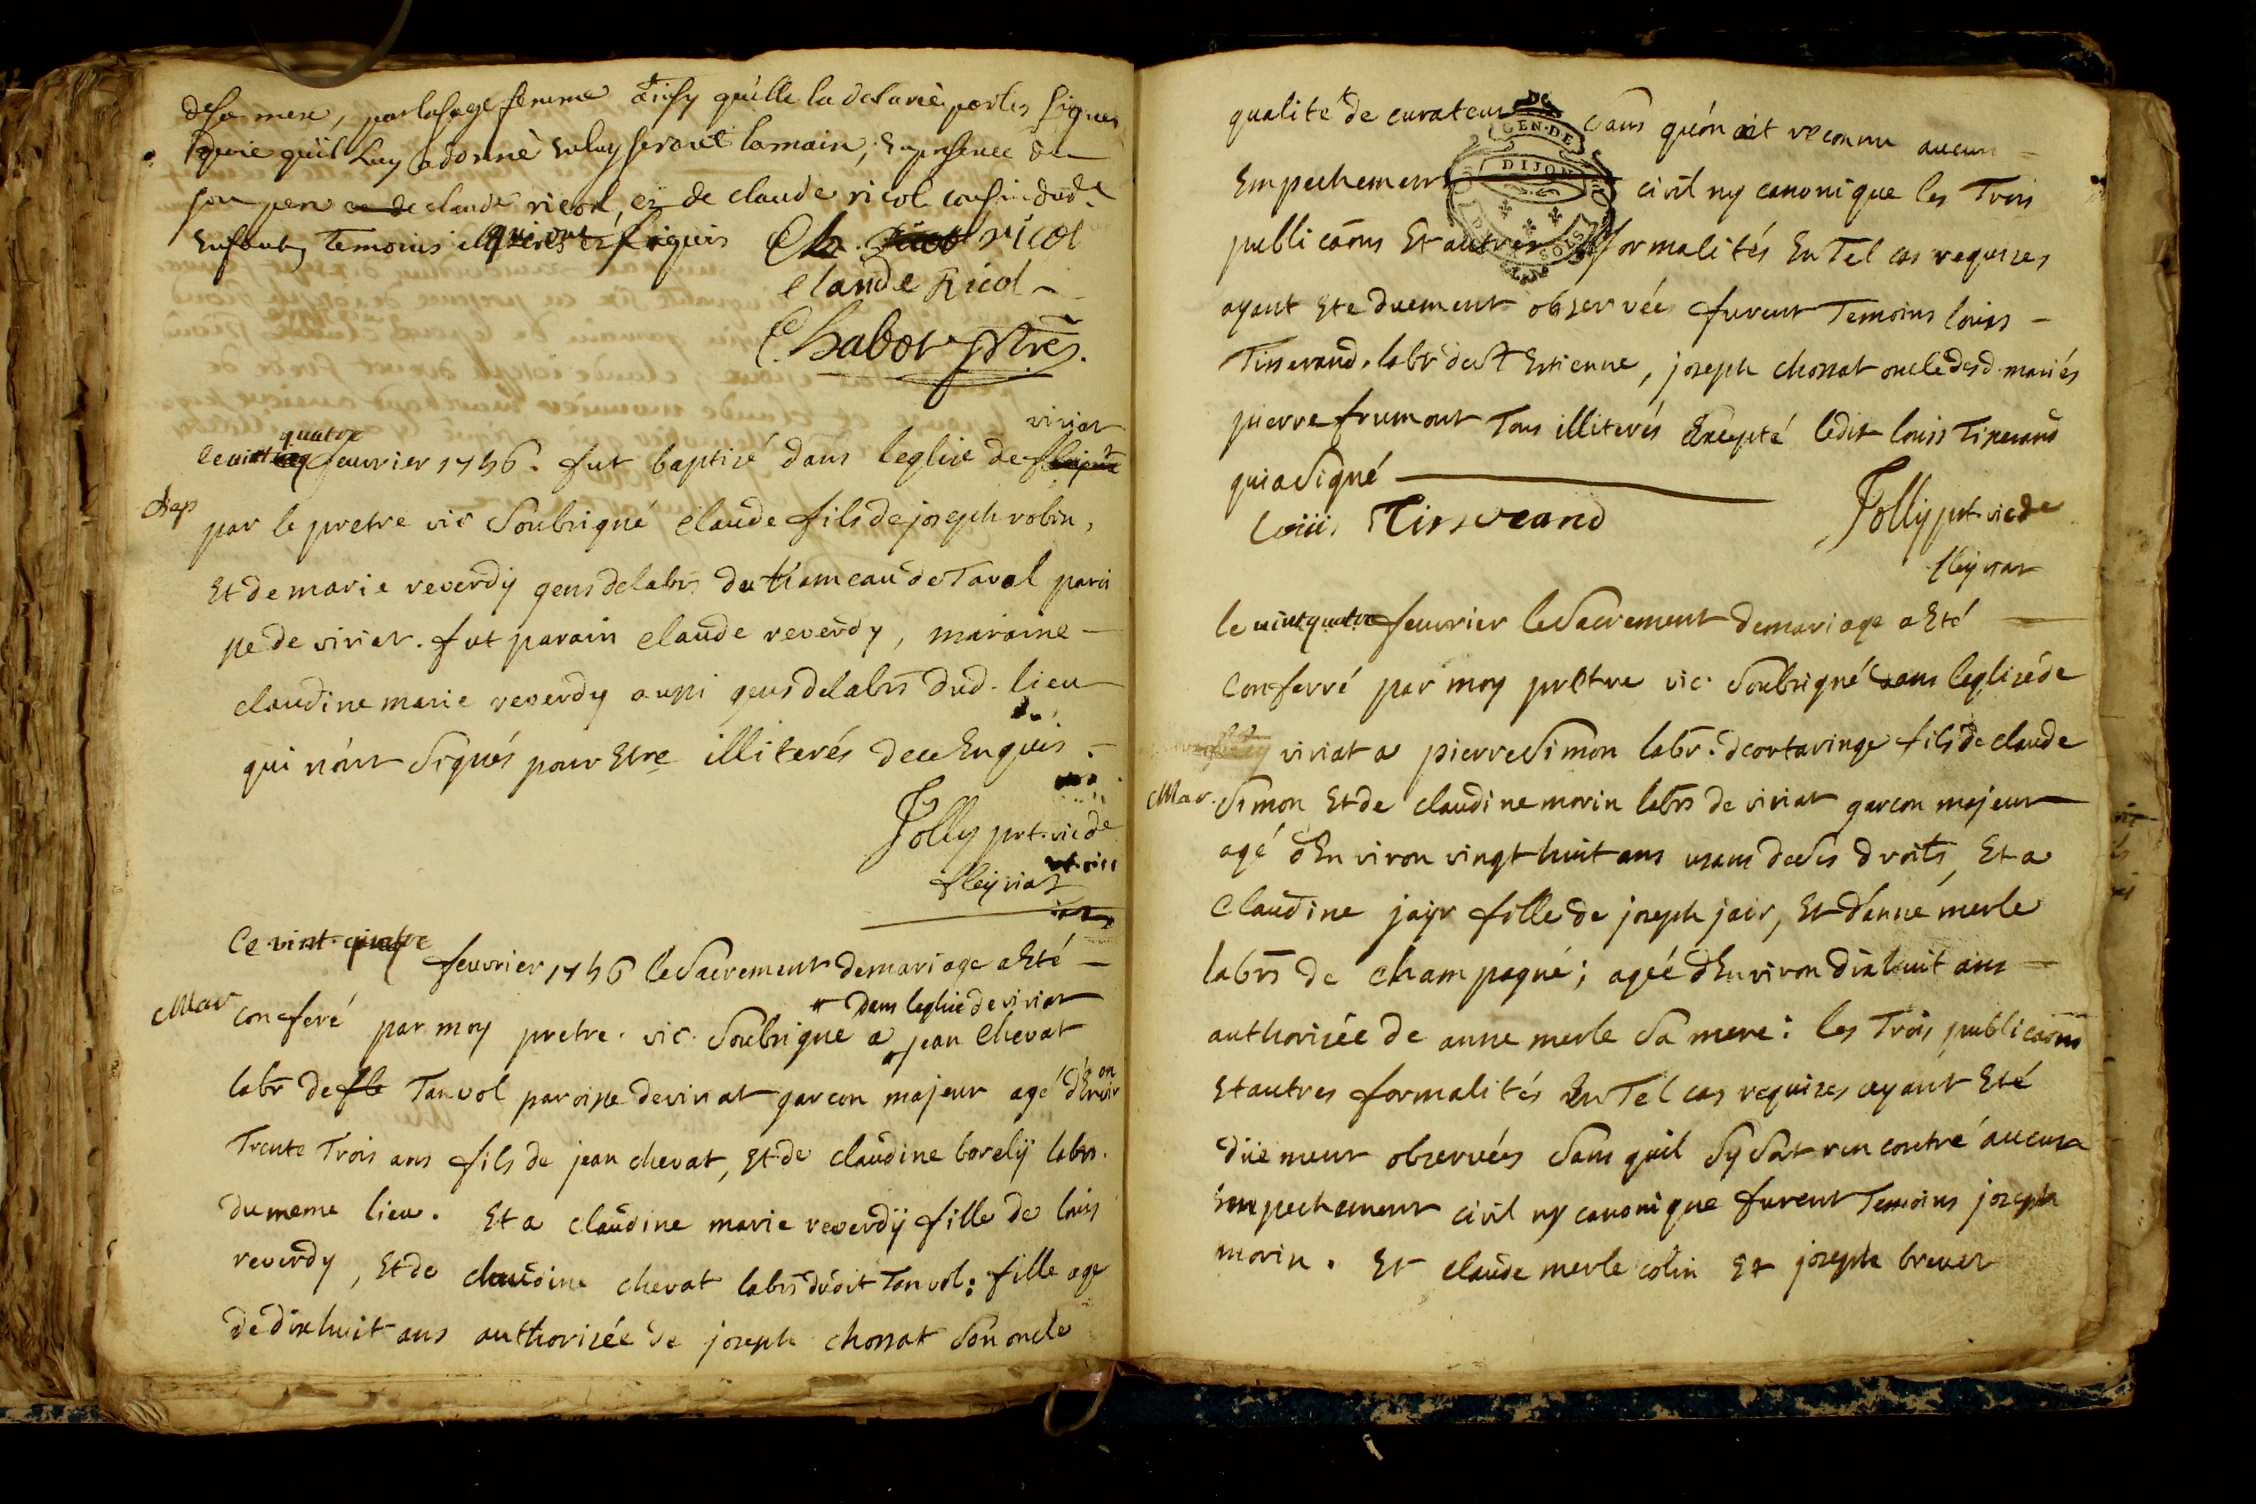 de sa mere, par la sage femme ainsy qu'elle la declaré par les signes
de vie qu'il luy a donné en luy serant la main, en presence de
son pere claude ricol, et de claude ricol cousin dud.
enfant, temoins qui ont signés Cl. ricol
claude Ricol
Chabot ptre
viriat
quatre
le vint fevrier 1756. fut baptizé dans leglise de
Bap
par le pretre vic soubsigné claude fils de joseph robin,
Et de marie reverdy gens de labr du hameau de Tavol parois
pe de viriat. fut parain claude reverdy, maraine
claudine marie reverdy aussi gens de labr dud. lieu
qui n'ont signés pour Etre illiterés de ce Enquis.
Jolly prt. vic de
fleyriat
le vint quatre fevrier 1756 le Sacrement de mariage a Eté
dans leglise de viriat
Mar
conferé par moy pretre. vic. soubsigné a jean Chevat
labr de fle Tanvol paroisse de viriat garcon majeur agé d'Environ
Trente Trois ans fils de jean chevat, Et de claudine borely labrs.
du meme lieu. Et a claudine marie reverdy fille de louis
reverdy, Et de claudine chevat labrs dudit Tanvol: fille age
de dix huit ans authorizée de joseph chossat son oncle
qualite de curateur DE sans qu'on ait reconnu aucun
GEN. DE
DIJON
Empechement civil ny canonique les Trois
publicaons Et autres formalités En Tel cas requizes
ayant Ete duement observée furent Temoins louis
Tisserand. labr de St Estienne, joseph chossat oncle desd. mariés
pierre frumont Tous illiterés Excepté ledit louis Tisserand
qui a signé
Louis Tisserand
Jolly prt. vic de
fleyriat
le vint quatre fevrier le Sacrement de mariage a Eté
conferré par moy prêtre vic. soubsigné dans leglize de
viriat a pierre Simon labr. de cortaringe fils de claude
Mar.
Simon Et de claudine morin labrs de viriat garcon majeur
agé d'Environ vingt huit ans usans de ses droits, Et a
claudine jayr fille de joseph jair, Et d'anne merle
labrs de champagné; ageé d'Environ dix huit ans
authorizée de anne merle sa mere: les Trois publicaons
Et autres formalités En Tel cas requizes ayant Eté
düement observées sans quil sy soit rencontré aucun
Empechement civil ny canonique furent Temoins joseph
morin. Et claude merle colin Et joseph brevet